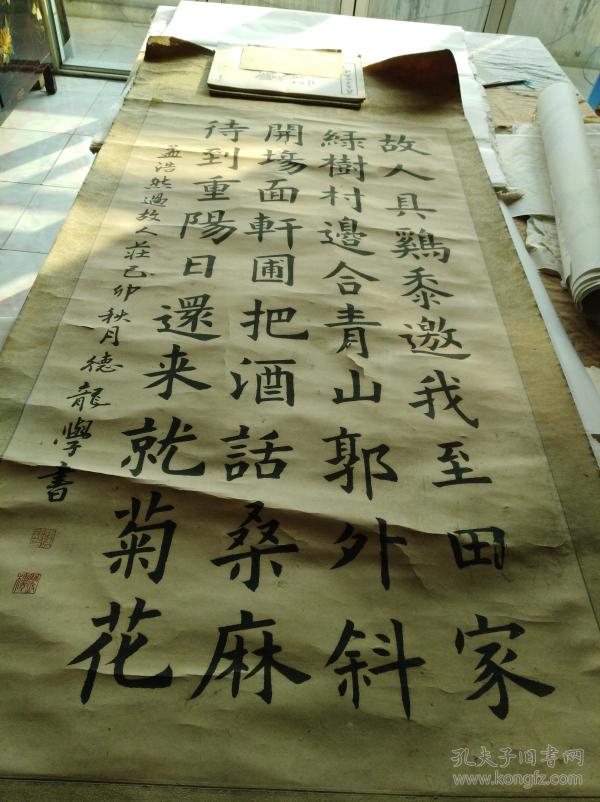 故人具鷄黍邀我至田家
綠樹村邊合青山郭外斜
開場面軒圃把酒話桑麻
待到重陽日還来就菊花
孟浩然過故人莊己卯秋月德龍學書
孔夫子旧书网
www.kongfz.com